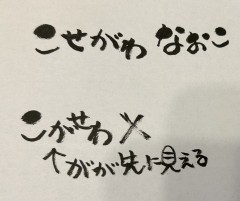 こせがわ なおこ
こがせわ ×
↑がが先に見える